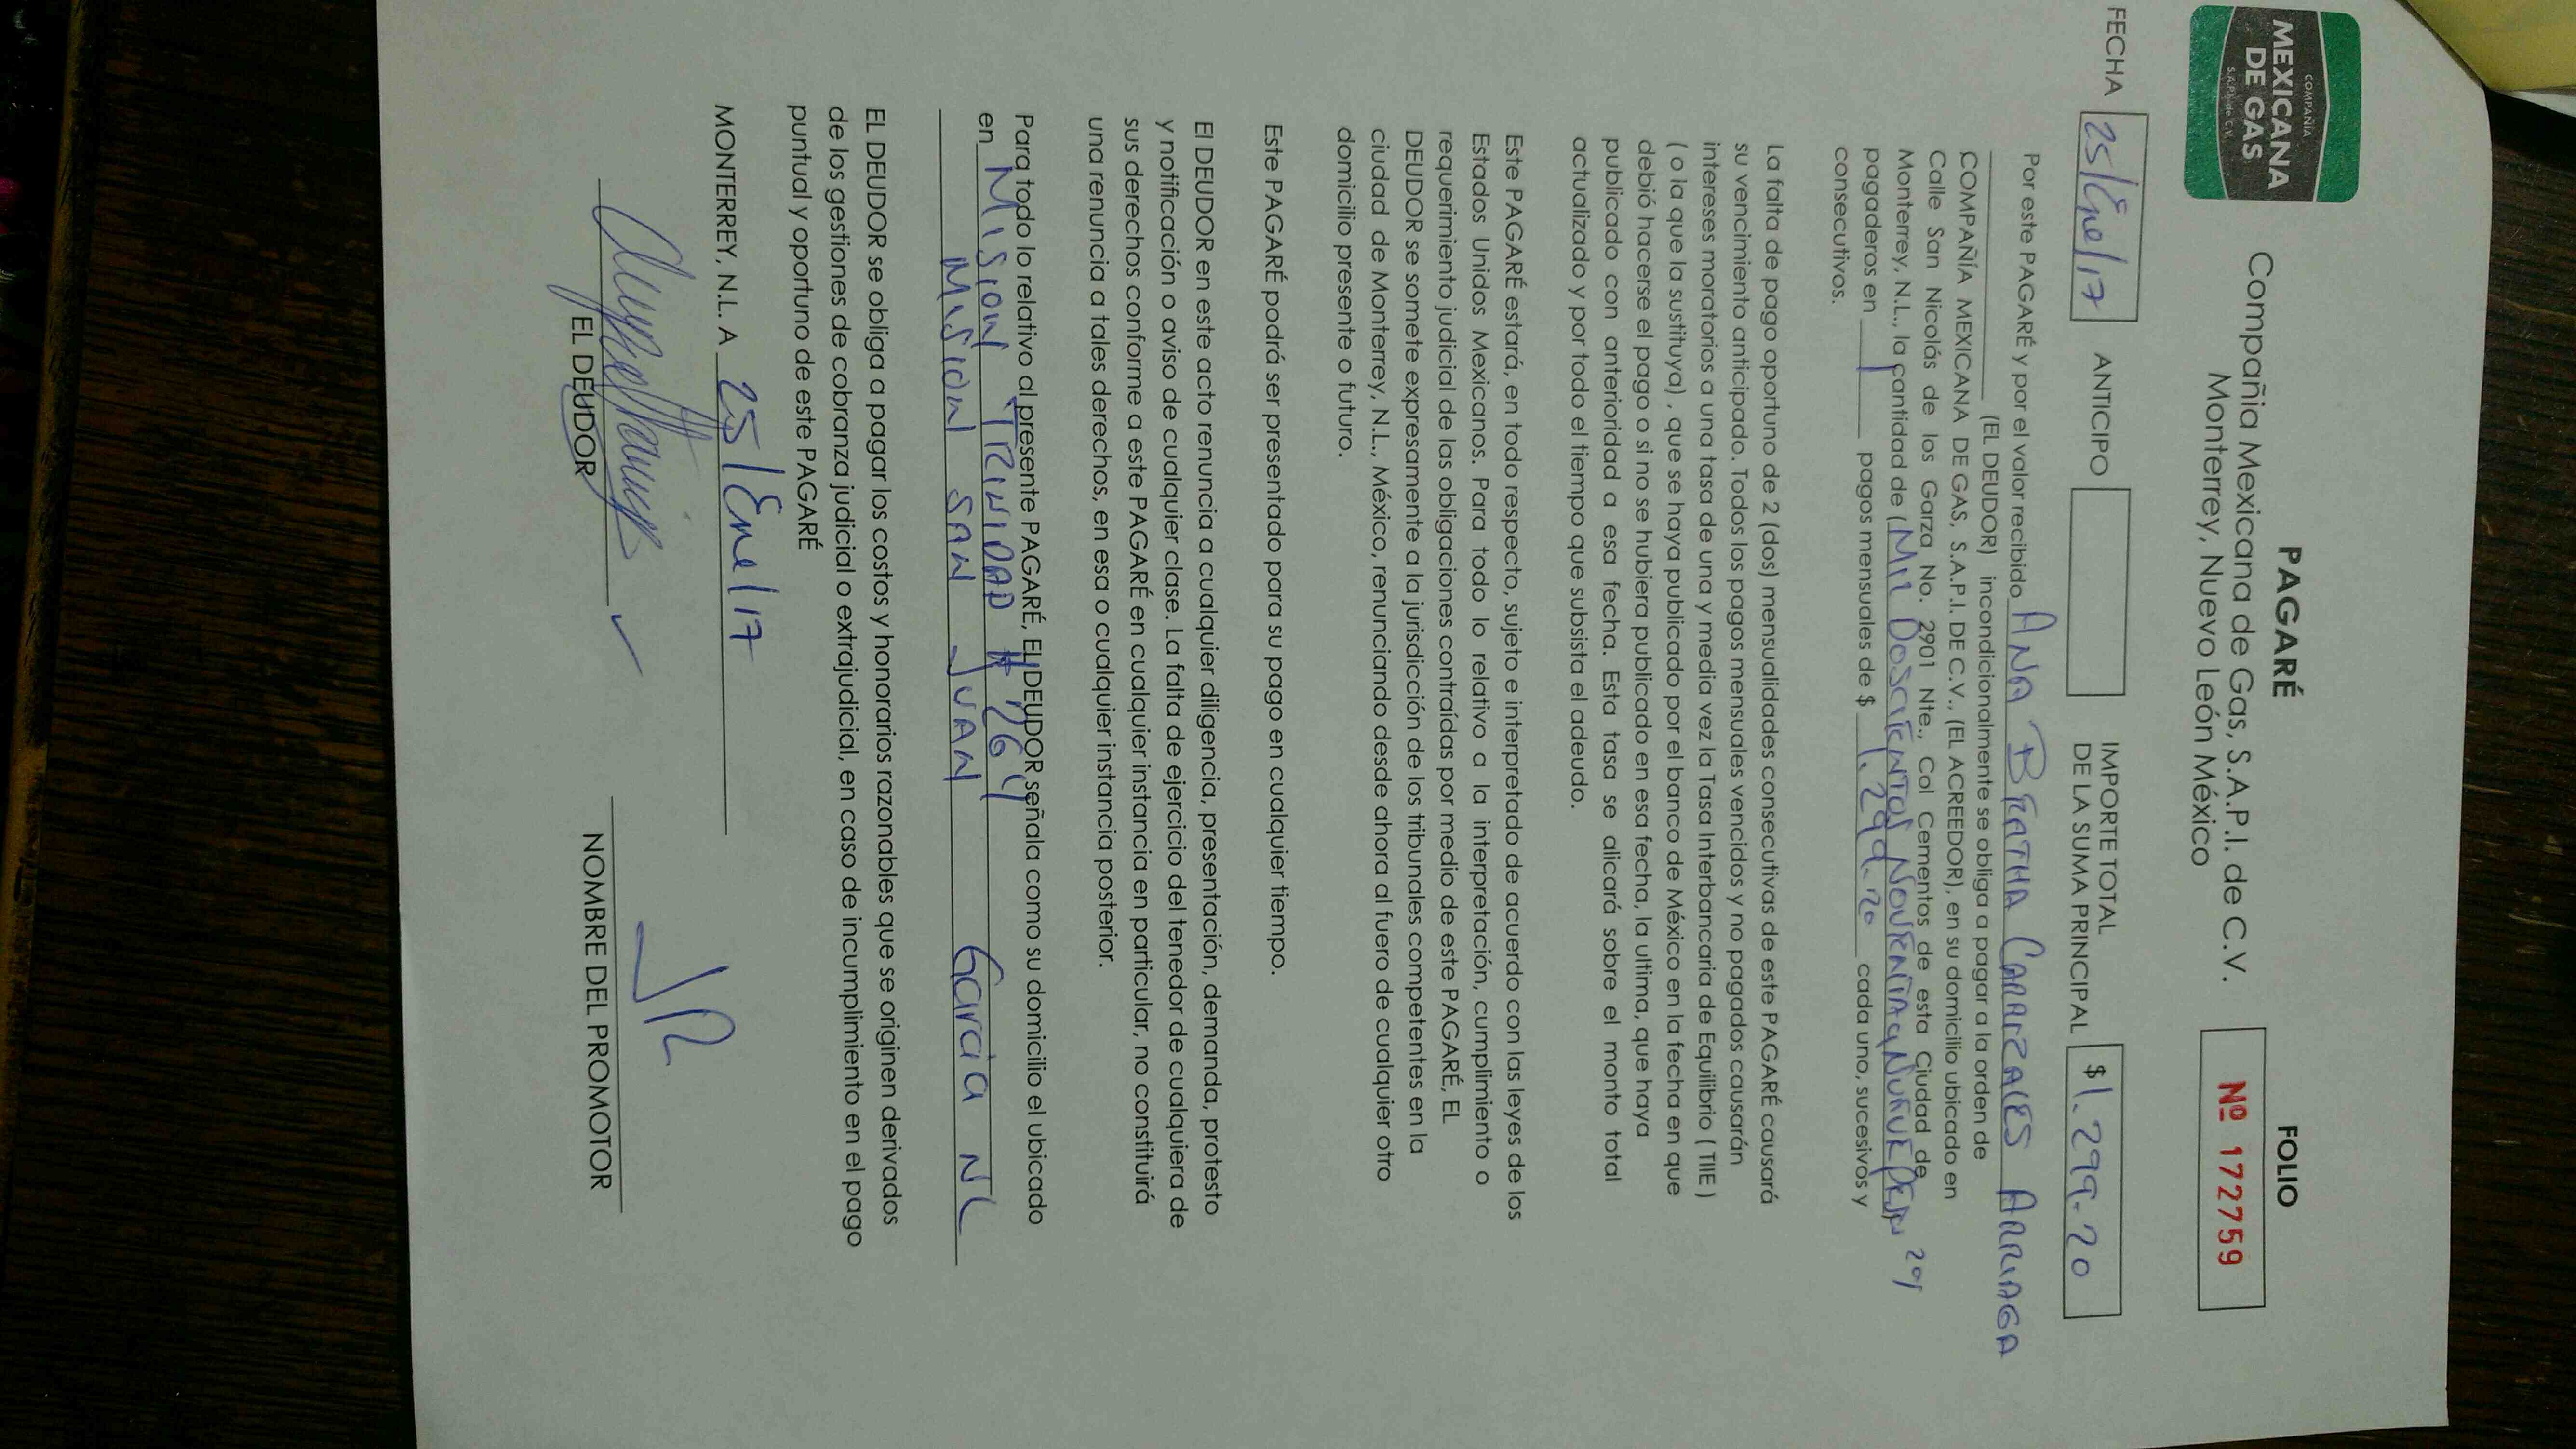 COMPAÑIA
MEXICANA
DE GAS
S.A.P.I. de C.V.
PAGARÉ
Compañia Mexicana de Gas, S.A.P.I. de C.V.
Monterrey, Nuevo León México
FOLIO
Nº 172759
FECHA 25/Ene/17 ANTICIPO IMPORTE TOTAL DE LA SUMA PRINCIPAL $1.299.20
Por este PAGARÉ y por el valor recibido ANA BERTHA CARRIZALES ARRIAGA
(EL DEUDOR) incondicionalmente se obliga a pagar a la orden de
COMPAÑÍA MEXICANA DE GAS, S.A.P.I. DE C.V., (EL ACREEDOR), en su domicilio ubicado en
Calle San Nicolás de los Garza No. 2901 Nte., Col Cementos de esta Ciudad de
Monterrey, N.L., la cantidad de (Mil DOSCIENTOS NOVENTA y NUEVE 20
pagaderos en 1 pagos mensuales de $ 1.299.20 cada uno, sucesivos y
consecutivos.
La falta de pago oportuno de 2 (dos) mensualidades consecutivas de este PAGARÉ causará
su vencimiento anticipado. Todos los pagos mensuales vencidos y no pagados causarán
intereses moratorios a una tasa de una y media vez la Tasa Interbancaria de Equilibrio ( TIIE )
( o la que la sustituya) , que se haya publicado por el banco de México en la fecha en que
debió hacerse el pago o si no se hubiera publicado en esa fecha, la ultima, que haya
publicado con anterioridad a esa fecha. Esta tasa se alicará sobre el monto total
actualizado y por todo el tiempo que subsista el adeudo.
Este PAGARÉ estará, en todo respecto, sujeto e interpretado de acuerdo con las leyes de los
Estados Unidos Mexicanos. Para todo lo relativo a la interpretación, cumplimiento o
requerimiento judicial de las obligaciones contraídas por medio de este PAGARÉ, EL
DEUDOR se somete expresamente a la jurisdicción de los tribunales competentes en la
ciudad de Monterrey, N.L., México, renunciando desde ahora al fuero de cualquier otro
domicilio presente o futuro.
Este PAGARÉ podrá ser presentado para su pago en cualquier tiempo.
El DEUDOR en este acto renuncia a cualquier diligencia, presentación, demanda, protesto
y notificación o aviso de cualquier clase. La falta de ejercicio del tenedor de cualquiera de
sus derechos conforme a este PAGARÉ en cualquier instancia en particular, no constituirá
una renuncia a tales derechos, en esa o cualquier instancia posterior.
Para todo lo relativo al presente PAGARÉ, El DEUDOR señala como su domicilio el ubicado
en MISION TRINIDAD # 269
MISION SAN JUAN Garcia NL
EL DEUDOR se obliga a pagar los costos y honorarios razonables que se originen derivados
de los gestiones de cobranza judicial o extrajudicial, en caso de incumplimiento en el pago
puntual y oportuno de este PAGARÉ
MONTERREY, N.L. A 25/Ene/17
EL DEUDOR
NOMBRE DEL PROMOTOR